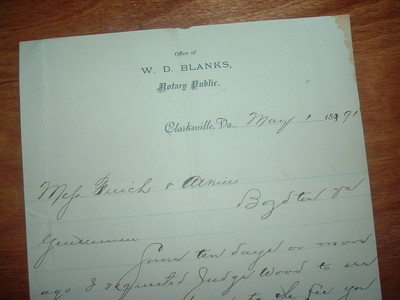 Office of
W. D. BLANKS,
Notary Public.
Clarksville, Va., May 1 1891
Mess Finch & Atkins
Boydton Va
Gentlemen
Some ten days or more
ago I requested Judge Wood to see
to the fee you